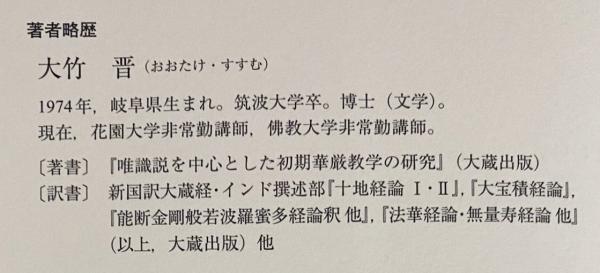 著者略歴
大竹 晋（おおたけ・すすむ）
1974年，岐阜県生まれ。筑波大学卒。博士（文学）。
現在，花園大学非常勤講師，佛教大学非常勤講師。
〔著書〕『唯識説を中心とした初期華厳教学の研究』（大蔵出版）
〔訳書〕新国訳大蔵経・インド撰述部『十地経論 Ⅰ・Ⅱ』，『大宝積経論』，
『能断金剛般若波羅蜜多経論釈 他』，『法華経論・無量寿経論 他』
（以上，大蔵出版）他